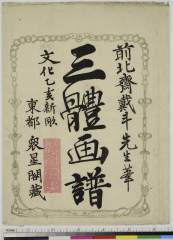 前北齋戴斗先生筆
三體画譜
文化乙亥新鐫
東都 衆星閣藏